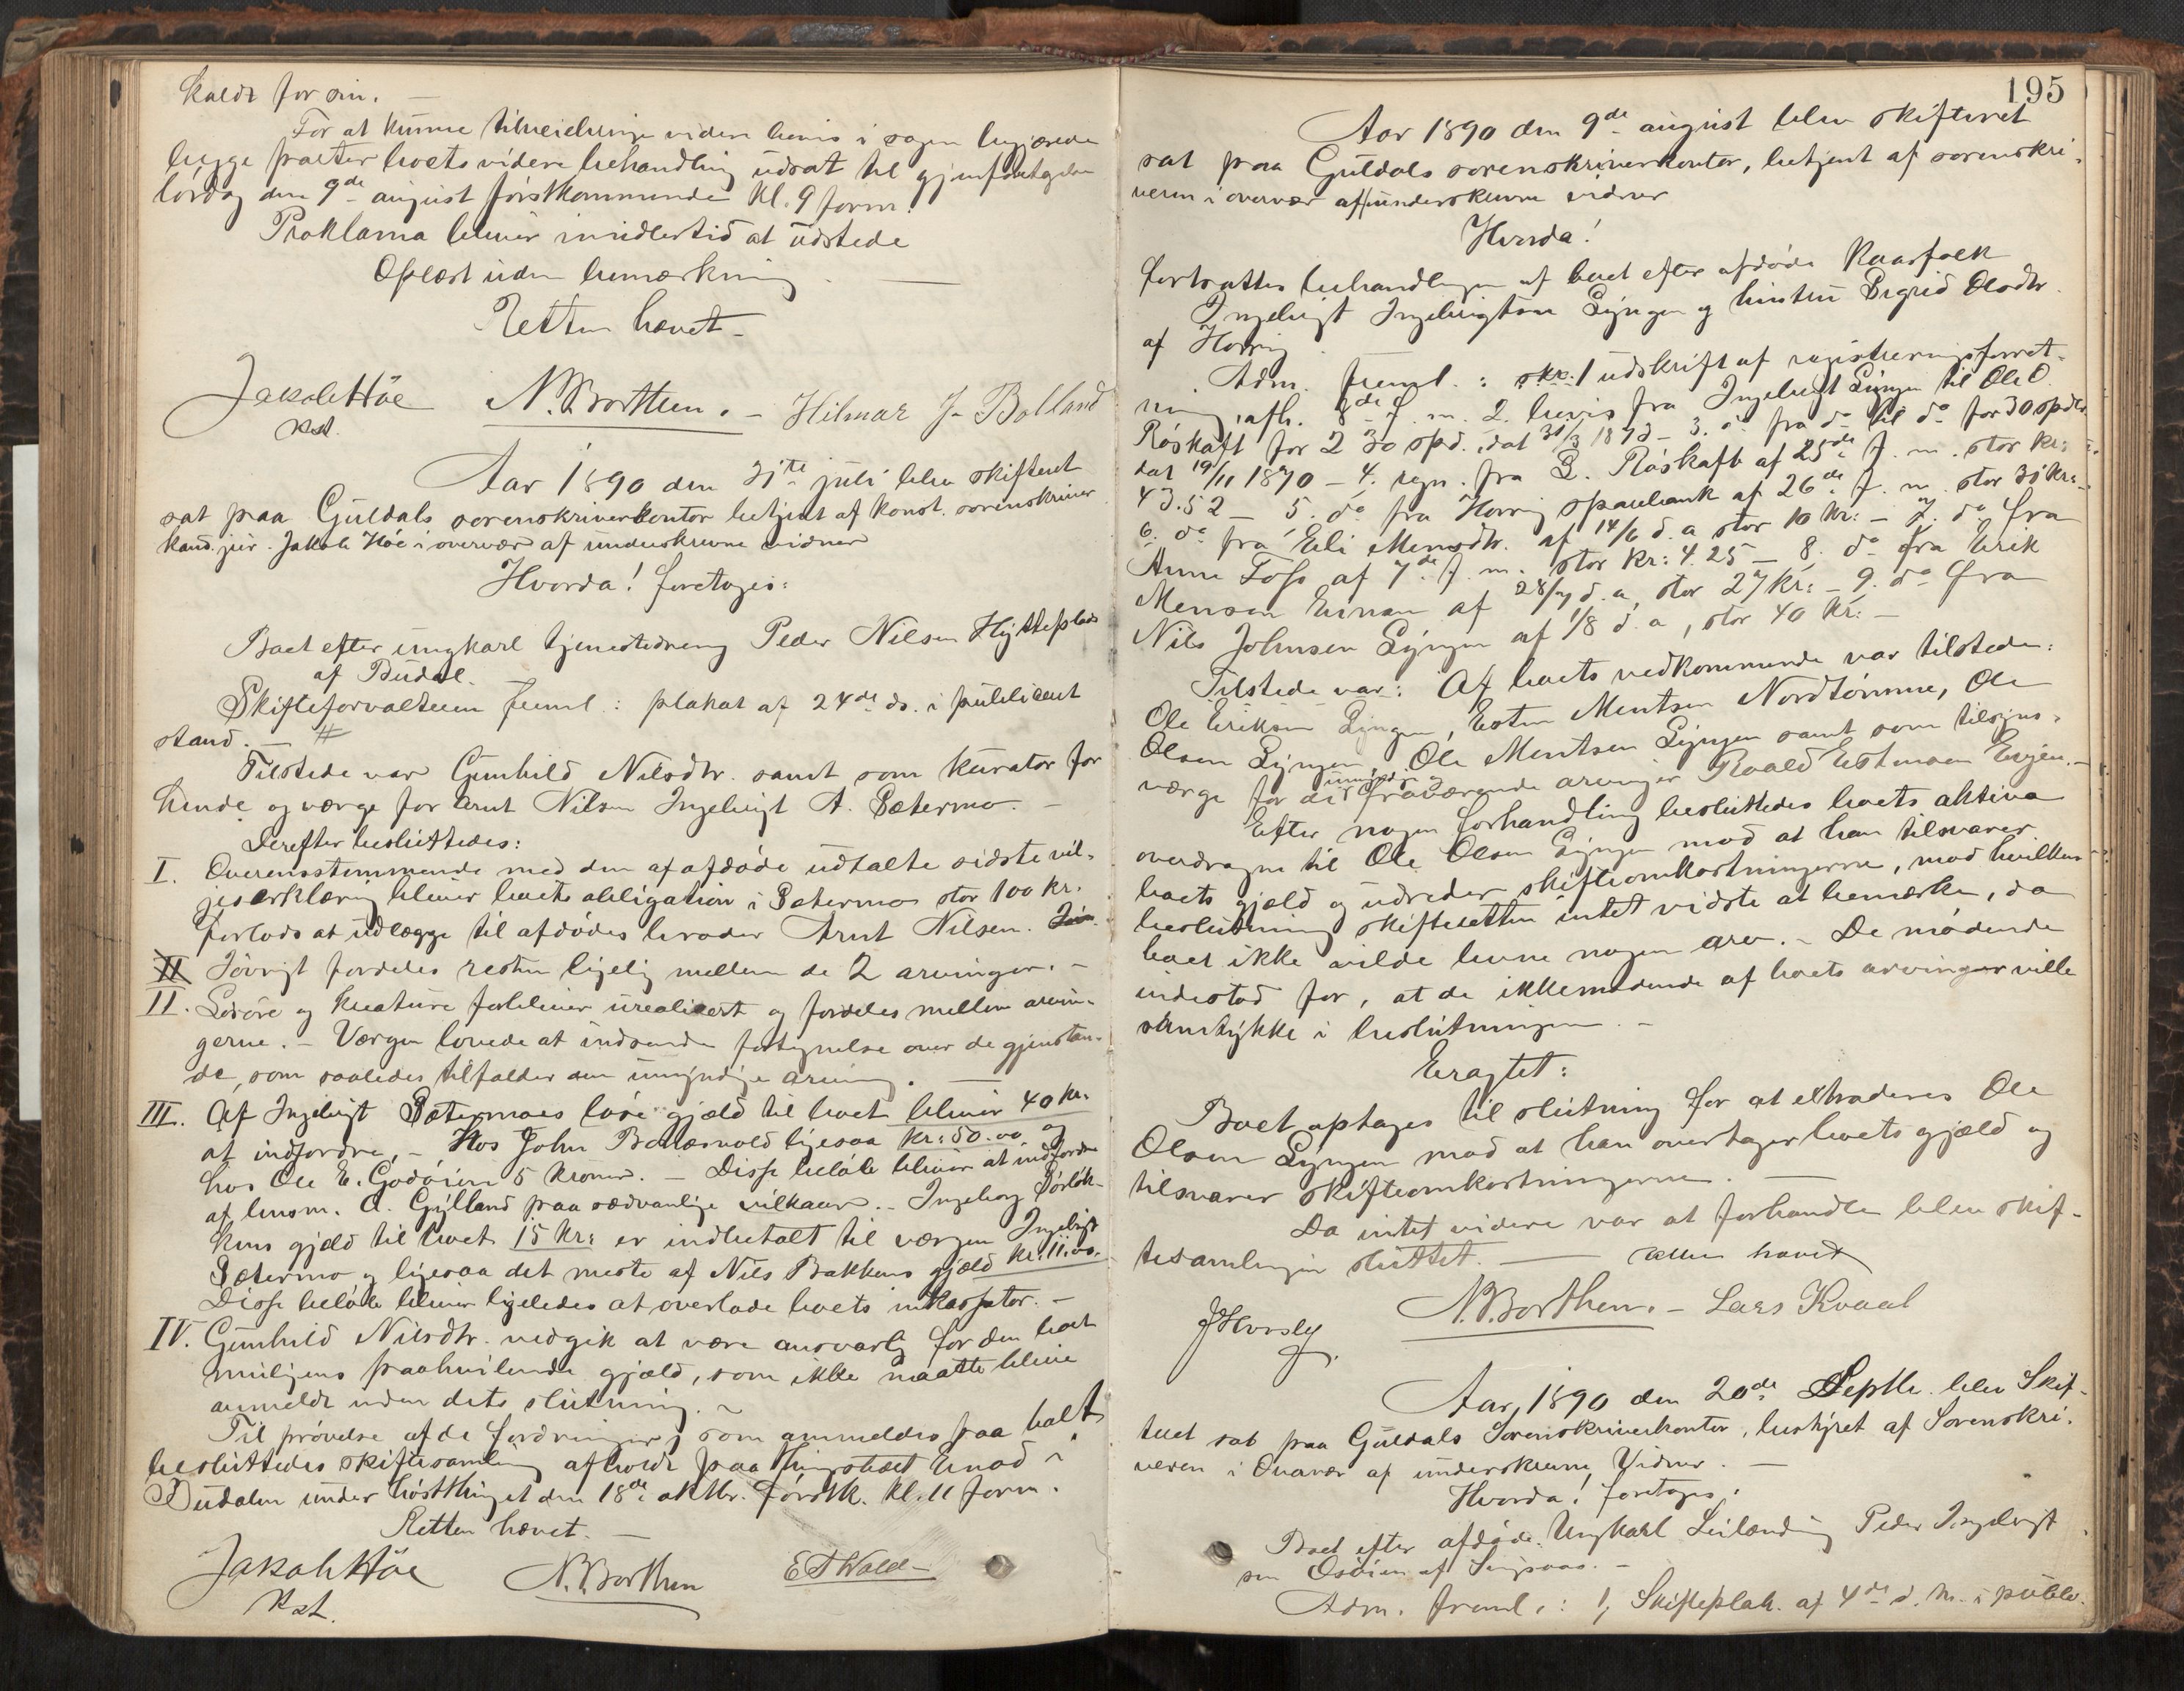 kaldt for sin. —
For at kunne tilveiebringe videre bevis i sagen begjærede
begge parter boets videre behandling udsat til gjenforetagelse
lørdag den 9de august førstkommende kl. 9 form.
Proklama bliver imidlertid at udstede
Oplæst uden bemærkning. —
Retten hævet –
Jakob Höe
Kst.
N. Borthen. –
Hilmar J. Bolland
Aar 1890 den 31te juli blev skifteret
sat paa Guldals sorenskriverkontor betjent af konst. sorenskriver
kand. jur. Jakob Höe i overvær af underskrevne vidner
Hvorda! foretoges:
Boet efter ungkarl tjenestedreng Peder Nilsen Hytteplads
af Budal.
Skifteforvalteren freml.: plakat af 24de ds. i publiceret
stand. —
Tilstede var Gunhild Nilsdtr. samt som kurator for
hende og værge for Arnt Nilsen Ingebrigt A. Sætermo. –
Derefter besluttedes:
I. Overensstemmende med den af afdøde udtalte sidste vil-
jeserklæring bliver boets obligation i Sætermo stor 100 kr.
forlods at udlægge til afdødes broder Arnt Nilsen.
II Iøvrigt fordeles resten ligelig mellem de 2 arvinger. –
II. Løsøre og kreature forbliver urealiseret og fordeles mellem arvin-
gerne. – Værgen lovede at indsende fortegnelse over de gjenstan-
de, som saaledes tilfalder den umyndige arving. —
III. Af Ingebrigt Sætermoes løse gjæld til boet bliver 40 kr.
at indfordre, – Hos John ligesaa kr: 50.00 og
hos Ole E. Godøien 5 kroner. – Disse beløb bliver at indfordre
af lensm. A. Gylland paa sædvanlige vilkaar. – Ingeborg
gjæld til boet 15 kr: er indbetalt til værgen Ingebrigt
Sætermo og ligesaa det meste af Nils Bakkens gjæld kr: 11.00.
Disse beløb bliver ligeledes at overlade boets inkassator. –
IV. Gunhild Nilsdtr. vedgik at være ansvarlig for den boet
muligens paahvilende gjæld, som ikke maatte blive
anmeldt inden dets slutning. ~
Til prøvelse af de fordringer, som anmeldes paa boet
besluttedes skiftesamling afholdt paa thingstedet Enod i
Budalen under høstthinget den 18de oktbr. førstk. kl. 11 form.
Retten hævet. —
Jakob Höe
Kst.
N. Borthen
E T Wald –
195
Aar 1890 den 9de august blev skifteret
sat paa Guldals sorenskriverkontor, betjent af sorenskri-
veren i overvær af underskrevne vidner
Hvorda!
fortsattes behandlingen af boet efter afdøde Kaarfolk
Ingebrigt Ingebrigtsen Lyngen og hustru Sigrid Olsdtr.
af Horrig. —
Adm. freml.: skr. 1 udskrift af registreringsforret-
ning, afh. 8de f. m. 2. bevis fra Ingebrigt Lyngen til Ole O.
Röskaft for 230 spd. dat 31/3 1873 – 3. do fra do til do for 30 spdlr.
dat 19/11 1870 – 4. regn. fra Röskaft af 25de f. m. stor kr:
43.52 – 5. do fra Horrig sparebank af 26de f. m. stor 30 kr: –
6. do fra Eli Mensdtr. af 14/6 d. a stor 10 kr: – 7. do fra
Anne Foss af 7de f. m. stor kr: 4.25 – 8. do fra Erik
Mensen af 28/7 d. a, stor 27 kr: – 9. do fra
Nils Johnsen Lyngen af 1/8 d. a, stor 40 kr: –
Tilstede var: Af boets vedkommende var tilstede:
Ole Eriksen Lyngen, Esten Mentsen Nordtömme, Ole
Olsen Lyngen, Ole Mentsen Lyngen samt som tilsyns-
værge for de umyndige og fraværende arvinger Roald Estensen Engen. –
Efter nogen forhandling besluttedes boets aktiva
overdragne til Ole Olsen Lyngen mod at han tilsvarer
boets gjæld og udreder skifteomkostningerne, mod hvilken
beslutning skifteretten intet vidste at bemærke, da
boet ikke vilde levne nogen arv. – De mødende
indestod for, at de ikkemødende af boets arvinger ville
samtykke i beslutningen. –
Eragtet:
Boet optages til slutning for at extraderes Ole
Olsen Lyngen mod at han overtager boets gjæld og
tilsvarer skifteomkostningerne. —
Da intet videre var at forhandle blev skif-
tesamlingen sluttet. — retten hævet
N. Borthen. – Lars Kvaal
Aar 1890 den 20de Septbr. blev Skif-
teret sat paa Guldals Sorenskriverkontor, bestyret af Sorenskri-
veren i Overvær af underskrevne Vidner. —
Hvorda! foretoges:
Boet efter afdøde Ungkarl Leilænding Peder Ingebrigt-
sen Osøien af Singsaas. –
Adm. freml.: 1, Skifteplak. af 4de d. M. i publi-